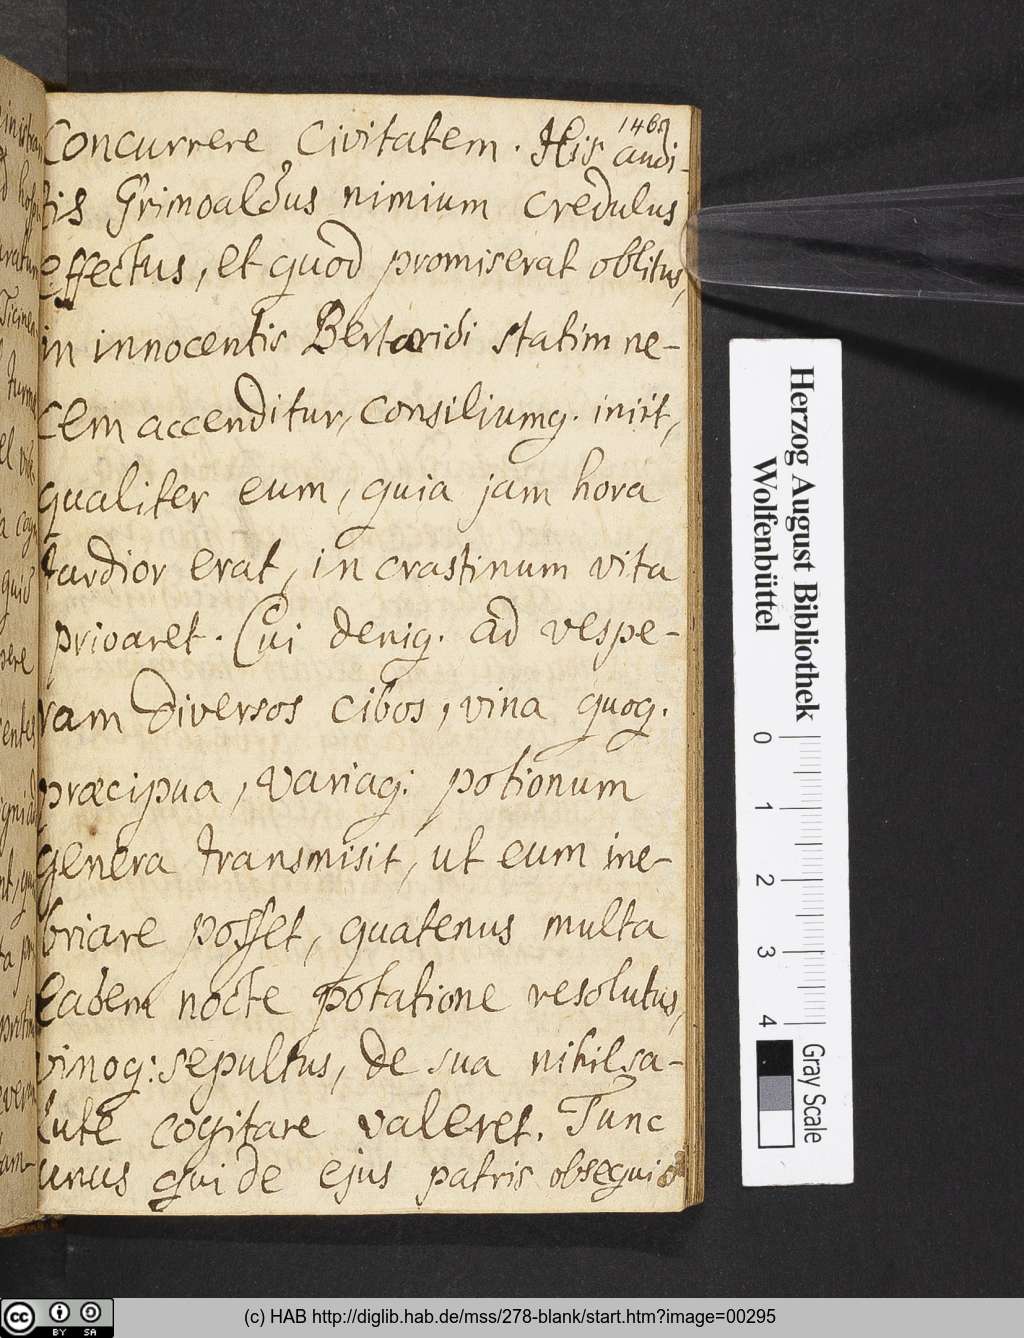 1469
Concurrere Civitatem. His audi-
tis Grimoaldus nimium credulus
effectus, et quod promiserat oblitus,
in innocentis Bertaridi statim ne-
cem accenditur, consiliumq. iniit,
qualiter eum, quia jam hora
tardior erat, in crastinum vita
privaret. Cui deniq. ad vespe-
ram diversos cibos, vina quoq.
præcipua, variaq: potionum
genera transmisit, ut eum ine-
briare posset, quatenus multa
eadem nocte potatione resolutus,
vinoq: sepultus, de sua nihil sa-
lute cogitare valeret. Tunc
unus qui de ejus patris obsequio
Herzog August Bibliothek
Wolfenbüttel
0 1 2 3 4
Gray Scale
cc BY SA
(c) HAB http://diglib.hab.de/mss/278-blank/start.htm?image=00295